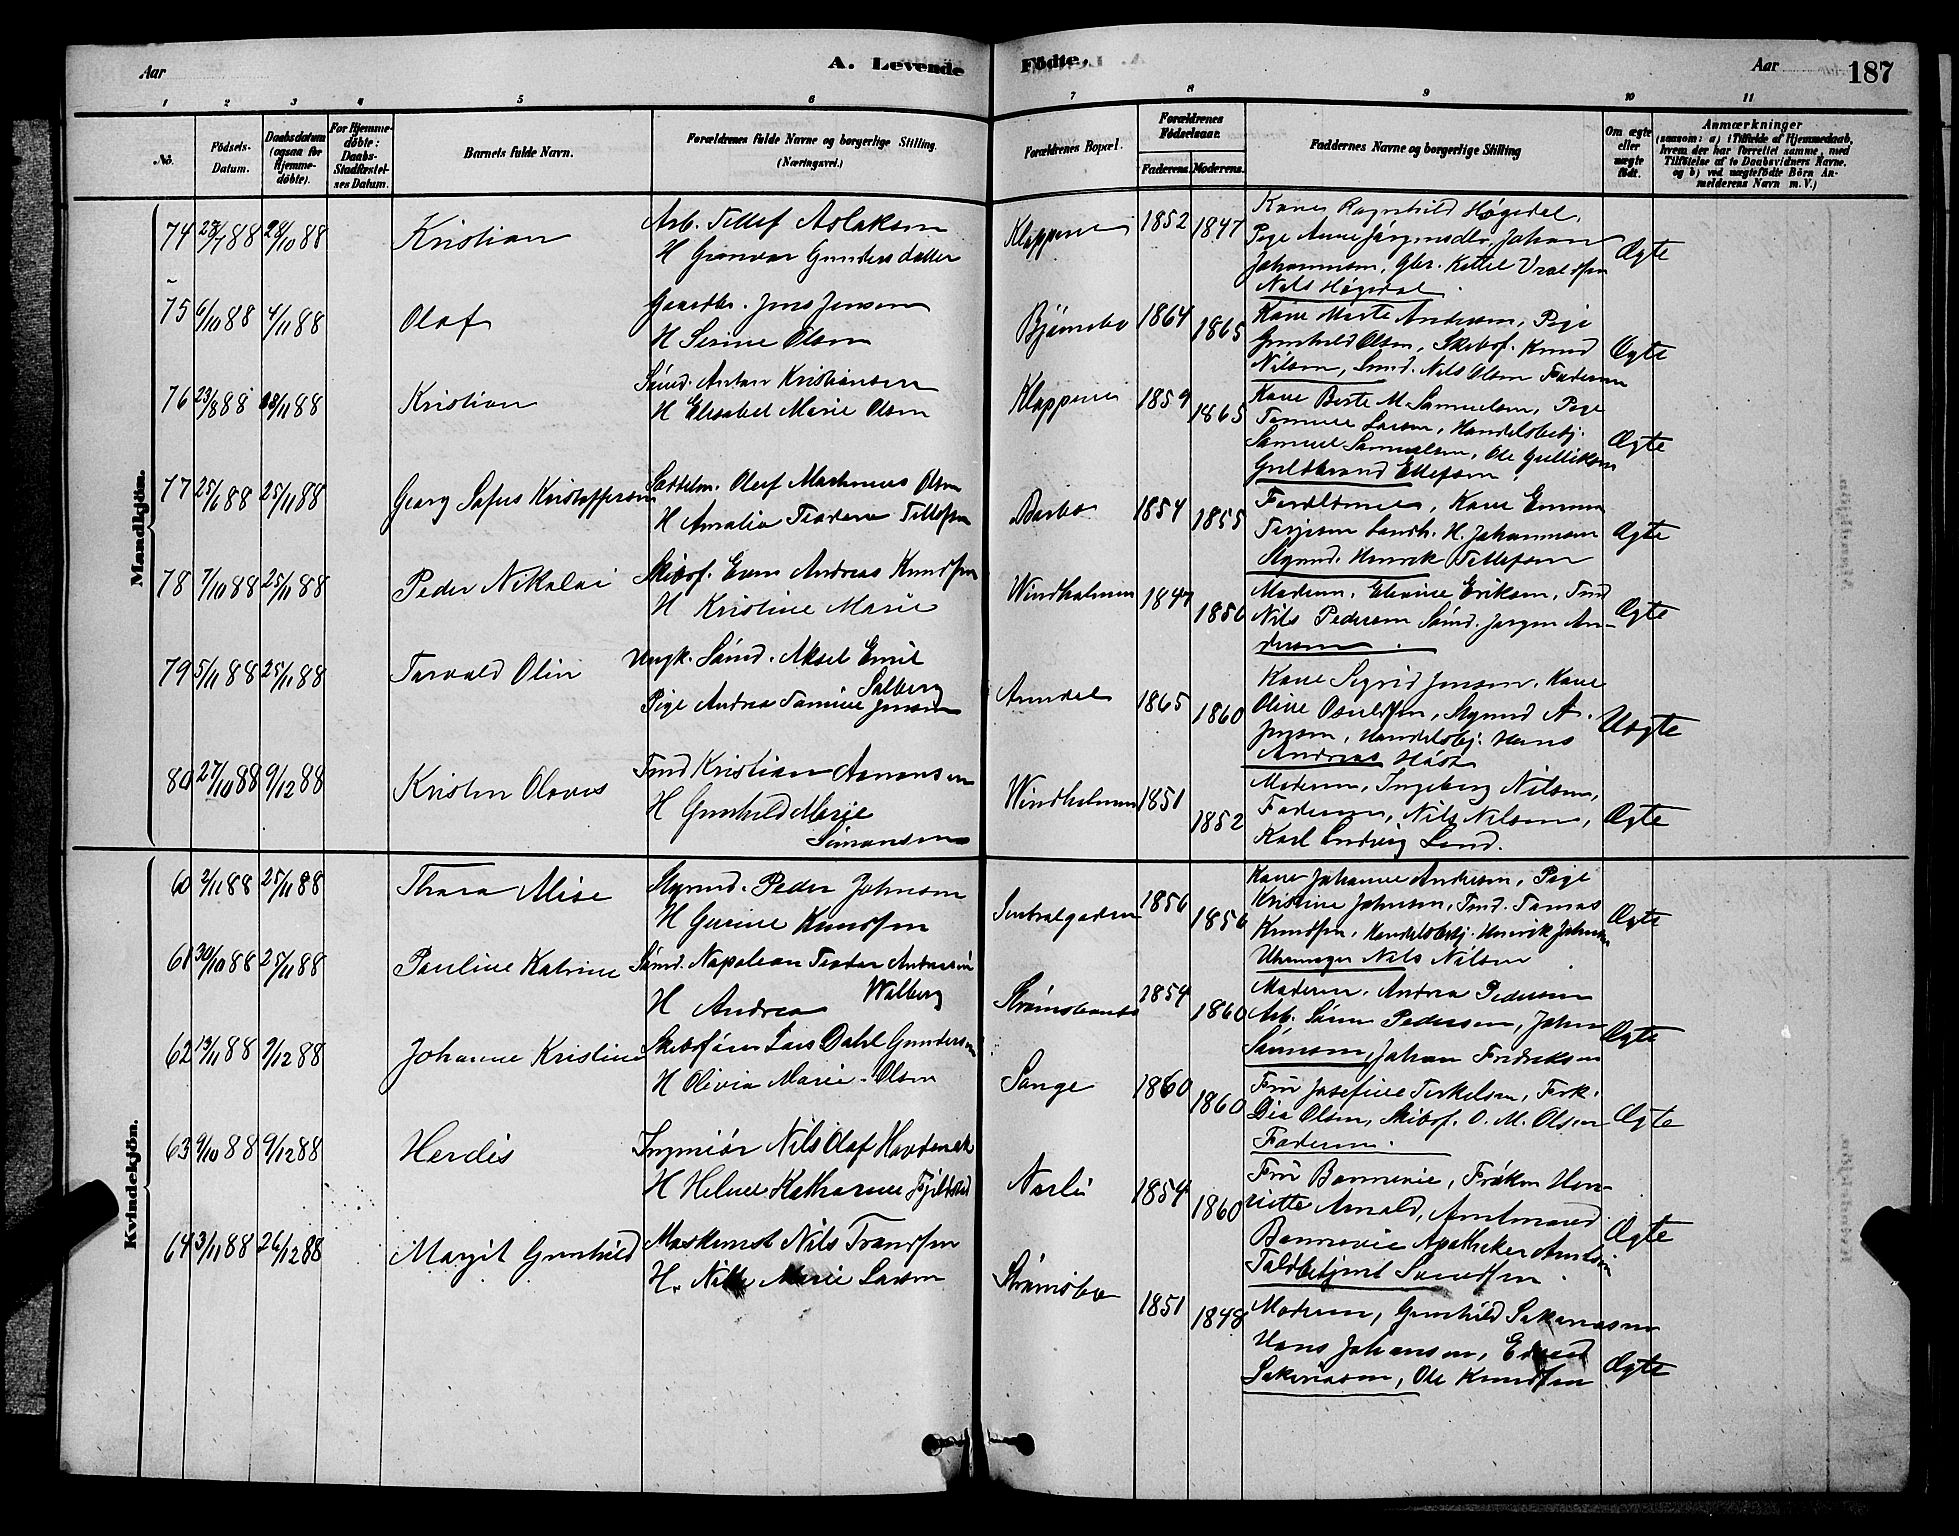 Aar
A. Levende Fødte.
Aar
187
1 2 3 4 5 6 7 8 9 10 11
No.
Fødsels-Datum.
Daabsdatum (ogsaa for Hjemme-døbte).
For Hjemme-døbte: Daabs-Stadfæstel-ses Datum.
Barnets fulde Navn.
Forældrenes fulde Navne og borgerlige Stilling. (Næringsvei.)
Forældrenes Bopæl.
Forældrenes Fødselsaar.
Faderens. Moderens.
Faddernes Navne og borgerlige Stilling
Om ægte eller uægte født.
Anmærkninger
(saasom: a) i Tilfælde af Hjemmedaab, hvem der har forrettet samme, med Tilføielse af to Daabsvidners Navne. og b) ved uægtefødte Børn An-melderens Navn m. V.)
Mandkjøn.
74 28/7 88 28/10 88 Kristian
Arb. Tellef Aslaksen
H Gunvor Gundersdatter
Klappene 1852 1847
Kone Ragnhild Høgedal,
Pige Anne Jørgensdtr, Johan
Johannesen, Gbr. Kettel Vraldsen
Nils Høgedal.
Ægte
75 6/10 88 4/11 88 Olaf
Gaardbr. Jens Jensen
H Serine Olsen
Bjørnebo 1864 1865
Kone Marte Andersen, Pige
Gunhild Olsen, Skibsf. Knud
Nilsen, Smd. Nils Olsen Faderen
Ægte
76 23/8 88 18/11 88 Kristian
Sømd. Anton Kristiansen
H Elisabet Marie Olsen
Klappene 1859 1865
Kone Berte M. Samuelsen, Pige
Tomine Larsen, Handelsbetj.
Samuel Samuelsen, Ole Gulliksen
Guldbrand Ellefsen.
Ægte
77 25/6 88 25/11 88 Georg Sofus Kristofferson
Sættelm. Oluf Martinius Olsen
H Amalia Teodora Tellefsen
Barbo 1854 1855
Forældrene, Kone Emma
Terjesen Landh. H. Johannesen
Styrmd. Henrik Tellefsen
Ægte
78 7/10 88 25/11 88 Peder Nikolai
Skibsf. Even Andreas Knudsen
H Kristine Marie
Windholmen 1847 1856
Moderen, Elevine Eriksen, Tmd
Nils Pedersen Sømd. Jørgen An-
dersen.
Ægte
79 5/11 88 25/11 88 Torvald Olin
Ungk. Sømd. Aksel Emil
Salberg
Pige Andrea Tomine Jensen
Arendal 1865 1860
Kone Sigrid Jensen, Kone
Oline Osuldsen, Styrmd A.
Jensen, Handelsbetj. Hans
Andreas Høst
Uægte
80 27/10 88 9/12 88 Kristen Olavus
Tmd Kristian Aanonsen
H Gunhild Marie
Simonsen
Windholmen 1851 1852
Moderen, Ingeborg Nilsen,
Faderen, Nils Nilsen,
Karl Ludvig Lund.
Ægte
Kvindekjøn.
60 2/11 88 25/11 88 Thora Alise
Styrmd. Peder Johnsen
H Gurine Knudsen
Sentralgaden 1856 1856
Kone Johanne Andersen, Pige
Kristine Johnsen, Tmd. Tomas
Knudsen, Handelsbetj. Henrik Johnsen
Uhrmager Nils Nilsen
Ægte
61 30/10 88 25/11 88 Pauline Katrine
Sømd. Napoleon Teodor Andreasen
Walberg
H Andrea
Strømsbo 1854 1860
Moderen, Andrea Pedersen
Arb. Søren Pedersen, John
Sørensen, Johan Fredriksen
Ægte
62 13/11 88 9/12 88 Johanne Kristine
Skibsfører Lars Dahl Gundersen
H Olivia Marie Olsen
Songe 1860 1860
Fru Josefine Terkelsen, Frk.
Dia Olsen, Skibsf. O. M. Olsen
Faderen.
Ægte
63 9/10 88 9/12 88 Herdis
Ingeniør Nils Olaf Hovdenak
H Helene Katharine Fjeldstad
Norli 1854 1860
Fru Bonnevie, Frøken Hen-
riette Arnold, Amtmand
Bonnevie Apotheker Arntsen
Toldbetjent Knudsen.
Ægte
64 3/11 88 26/12 88 Margit Gunhild
Maskinist Nils Trondsen
H. Nille Marie Larsen
Strømsbo 1851 1848
Moderen, Gunhild Sakariasen
Hans Johansen, Edvard
Sakariasen, Ole Knudsen
Ægte